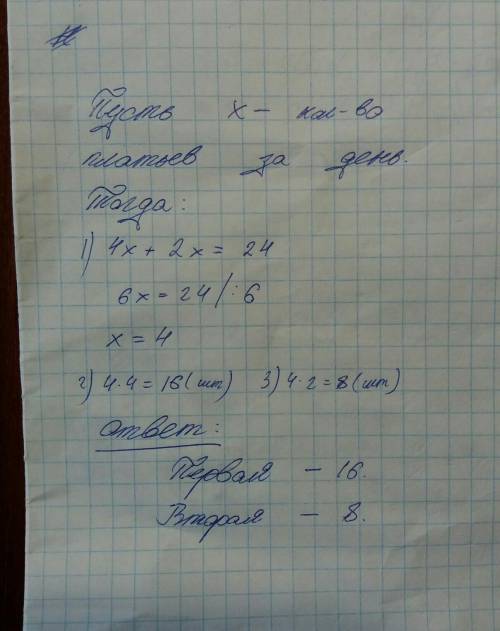 Пусть х — кол-во
платьев за день.
Тогда:
1) 4х + 2х = 24
6х = 24 /:6
х = 4
2) 4·4=16(шт) 3) 4·2=8(шт)
ответ:
Первая — 16.
Вторая — 8.